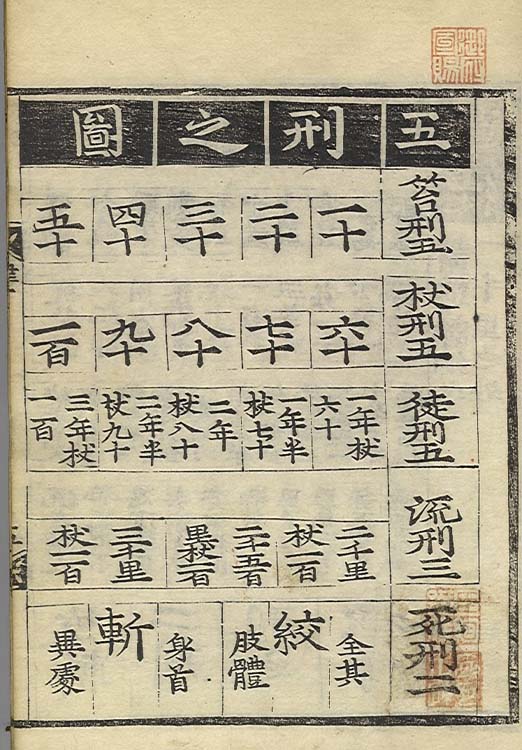 五刑之圖
笞刑五
一十
二十
三十
四十
五十
杖刑五
六十
七十
八十
九十
一百
徒刑五
一年杖
六十
一年半
杖七十
二年
杖八十
二年半
杖九十
三年杖
一百
流刑三
二千里
杖一百
二千五百
里杖一百
三千里
杖一百
死刑二
全其
絞
肢體
身首
斬
異處